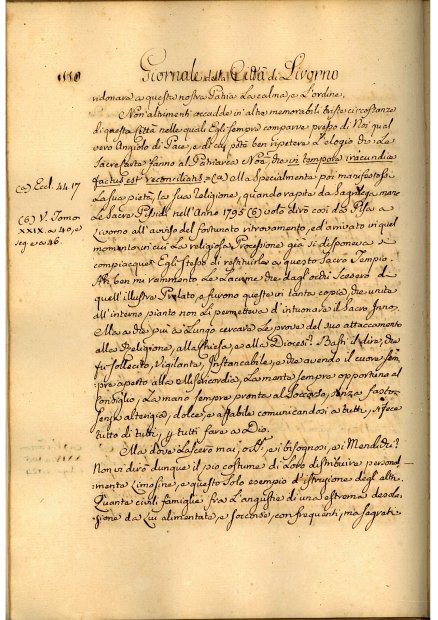 1110 Giornale della Città di Livorno
ridonare a questa nostra Patria la calma, e l'ordine.
Non altrimenti accadde in altre memorabili triste circostanze
di questa Città nelle quali Egli sempre comparve presso di Noi qual
vero Angiolo di Pace, e di cui potea ben ripetersi l'elogio che le
Sacre Carte fanno al Patriarca Noè, che in tempore iracundiæ
factus est reconciliatio = (a) Ella specialmente poi manifestossi
la sua pietà, la sua Religione, quando rapita da sacrilega mano
le Sacre Pissidi nell'anno 1795 (b) volò direi così da Pisa a
Livorno all'avviso del fortunato ritrovamento, ed arrivato in quel
momento in cui la religiosa Processione già si disponeva si
compiacque Egli stesso di restituirle a questo Sacro Tempio.
Ah, ben mi rammento le lacrime che dagl'occhi scesero di
quell'illustre Prelato, e furono queste in tanta copia, che unite
all'interno pianto non li permettea d'intuonare il Sacro Inno.
Ma a che più a lungo cercare le prove del suo attaccamento
alla Religione, alla Chiesa, e alla Diocesi? Basti il dire, che
fu sollecito, Vigilante, Instancabile, e che avendo il cuore sem-
pre aperto alla Misericordia, la mente sempre opportuna al
Consiglio, la mano sempre pronta al Soccorso, senza fasto,
senza alterigia, dolce, e affabile comunicandosi a tutti, si fece
tutto di tutti, per tutti fare a Dio.
Ma dove lascerò mai, o Sig.ri, e i bisognosi, e i Mendichi?
Non vi dirò dunque il pio costume di loro distribuire personal-
mente limosine, e questo solo esempio d'istruzione degl'altri.
Quante civili famiglie fra l'angustie di una estrema deso-
lazione da Lui alimentate, e soccorse, con frequenti, ma segrete
(a) Eccl. 44. 17
(b) V. Tomo
XXIX. a 40, e
seg. e a 46.